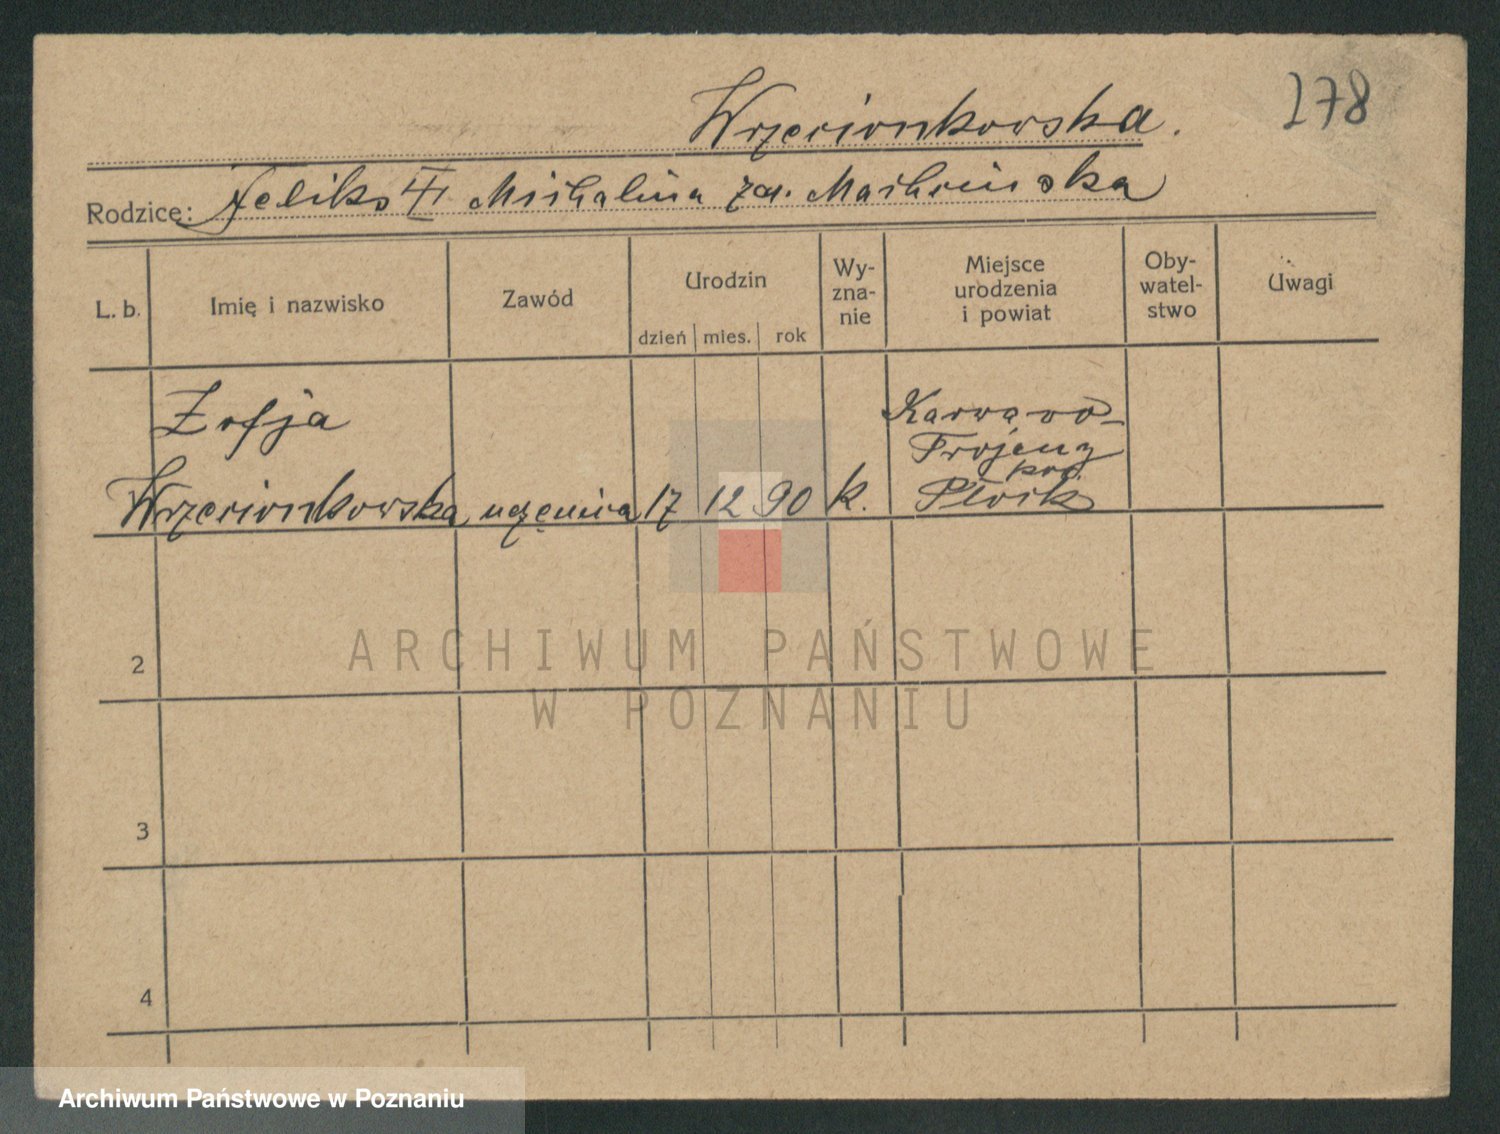 Wrzecionkowska.
178
Rodzice: Feliks Michalina
L. b. Imię i nazwisko Zawód Urodzin dzień mies. rok Wy-zna-nie Miejsce urodzenia i powiat Oby-watel-stwo Uwagi
Zofja
Wrzecionkowska uczenica 17 12 90 k. Karwowo-
Trojany
pow.
Płock
2
ARCHIWUM PAŃSTWOWE
W POZNANIU
3
4
Archiwum Państwowe w Poznaniu